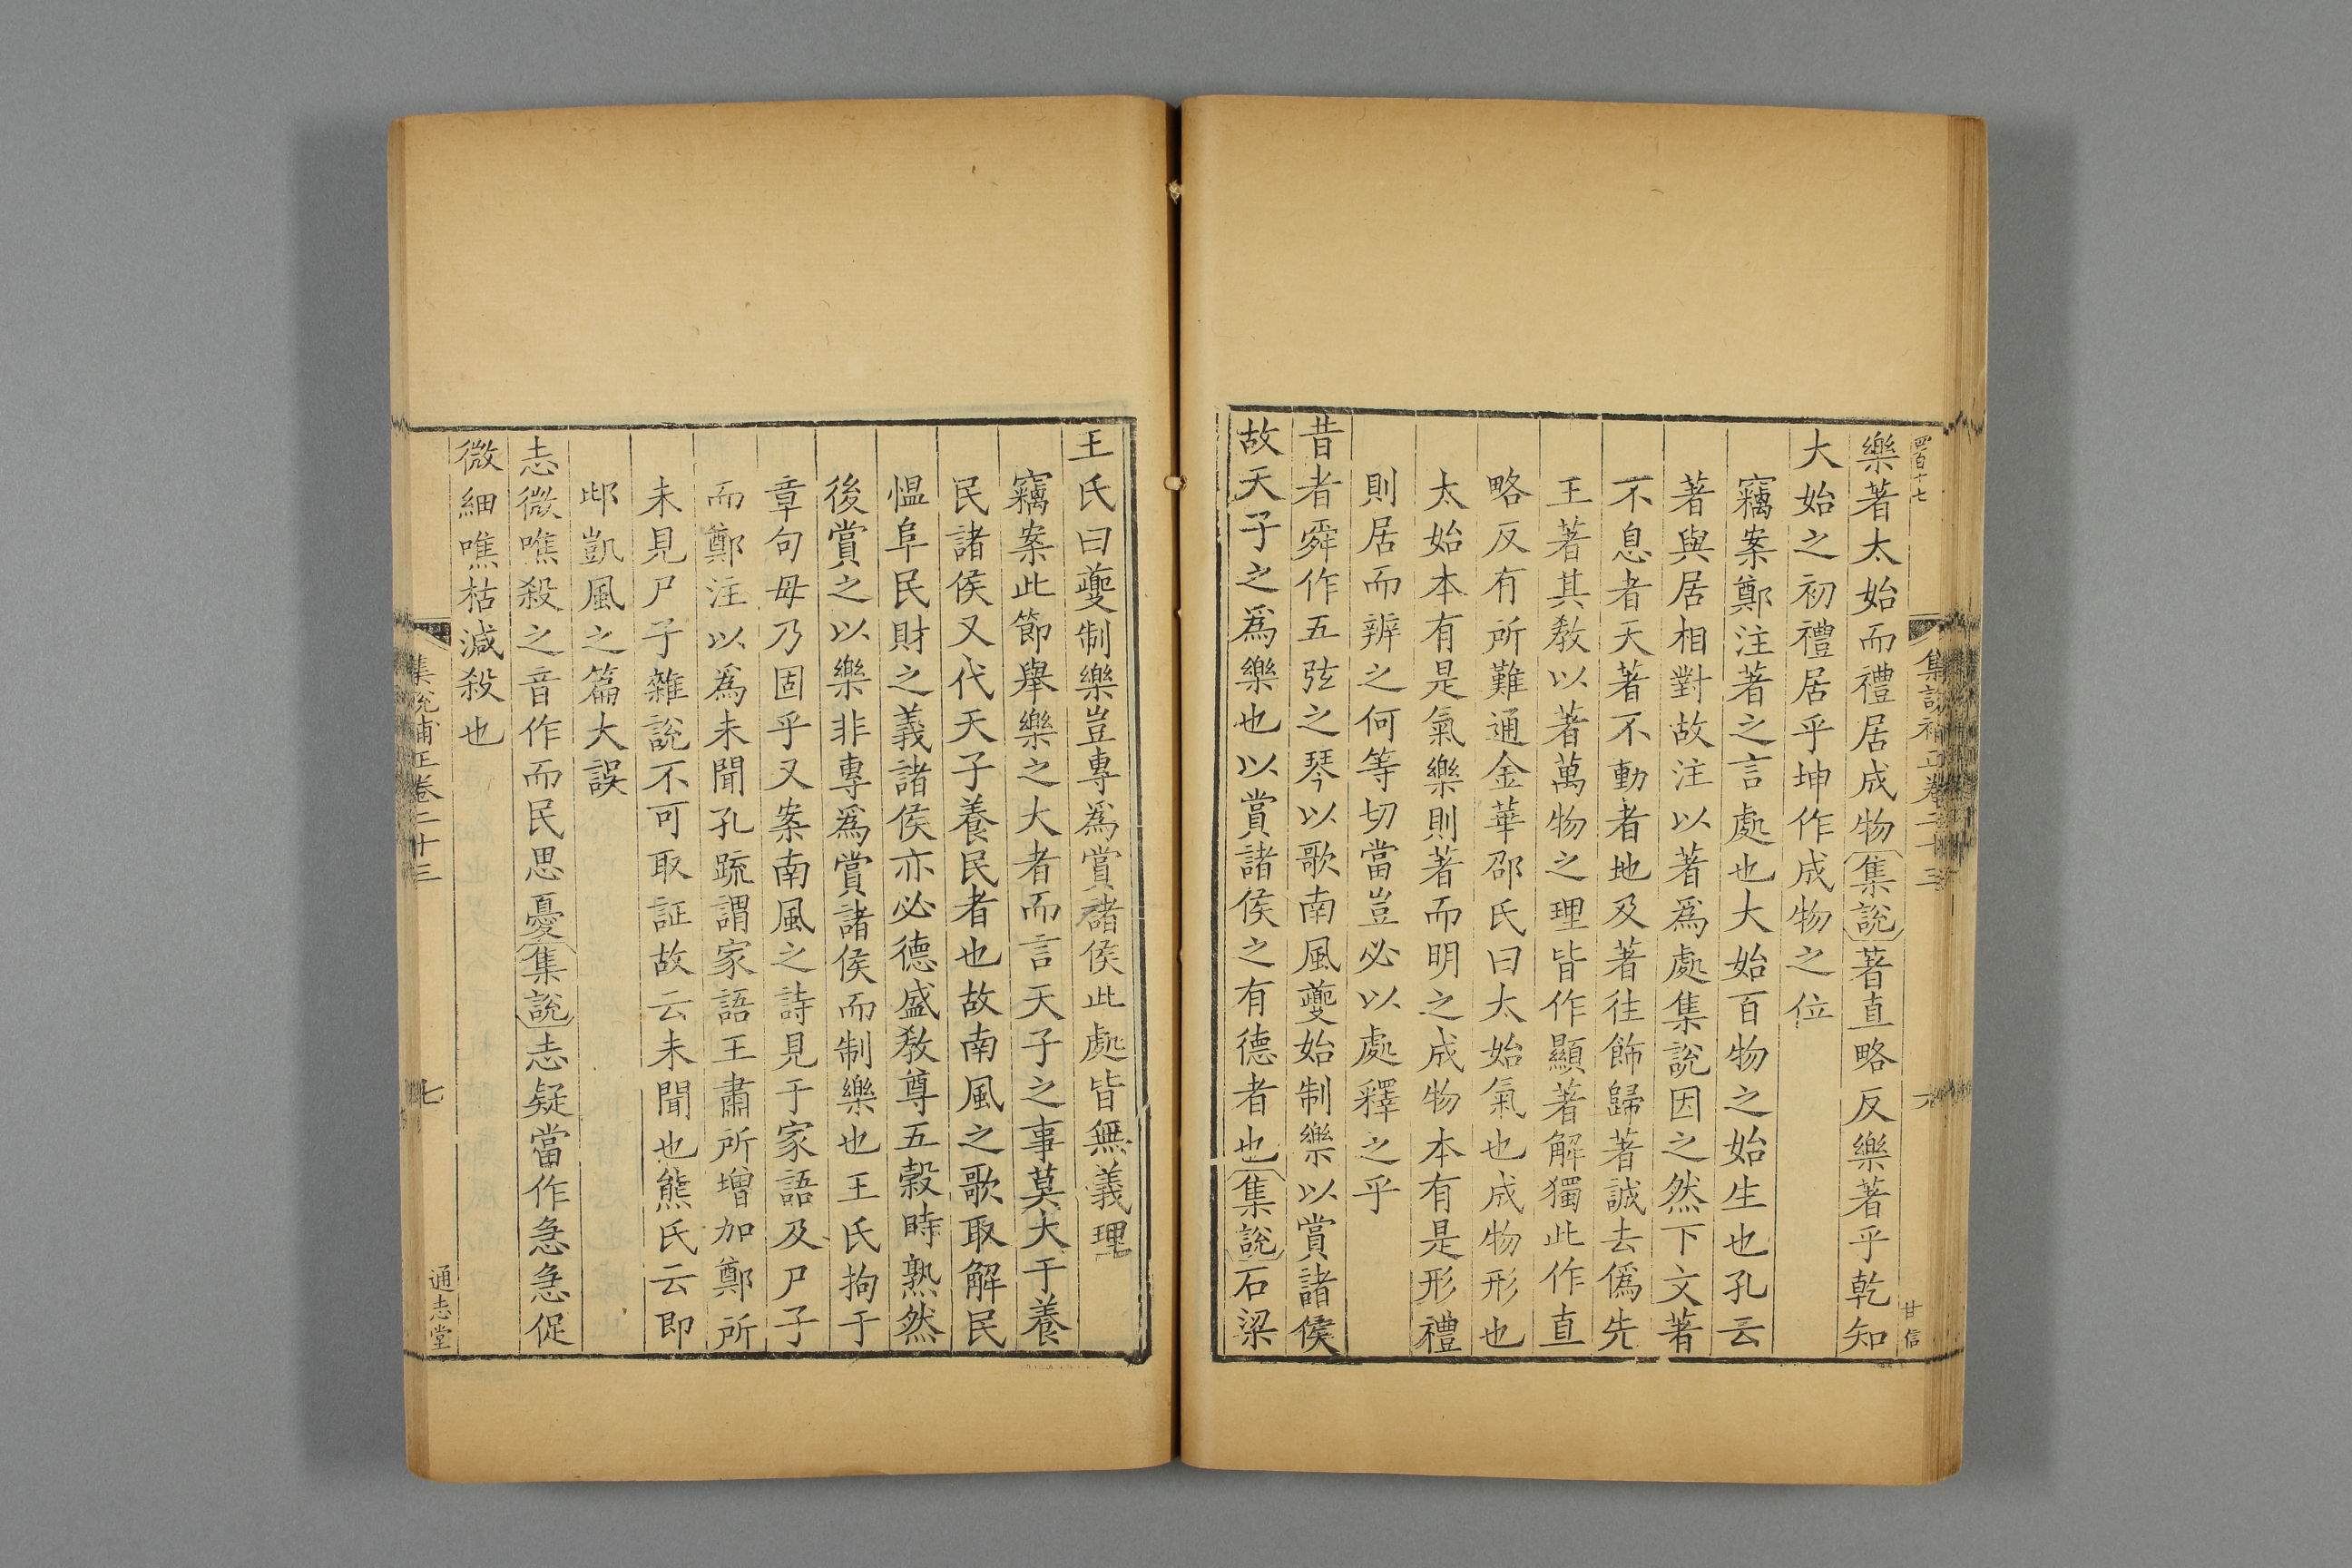 四百十七
集説補正卷二十三
六
甘信
樂著太始而禮居成物集說著直略反樂著乎乾知
大始之初禮居乎坤作成物之位
竊案鄭注著之言處也大始百物之始生也孔云
著與居相對故注以著爲處集說因之然下文著
不息者天著不動者地及著往飾歸著誠去僞先
王著其教以著萬物之理皆作顯著解獨此作直
略反有所難通金華邵氏曰太始氣也成物形也
太始本有是氣樂則著而明之成物本有是形禮
則居而辨之何等切當豈必以處釋之乎
昔者舜作五弦之琴以歌南風夔始制樂以賞諸侯
故天子之爲樂也以賞諸侯之有德者也集說石梁
王氏曰夔制樂豈專爲賞諸侯此處皆無義理
竊案此節舉樂之大者而言天子之事莫大于養
民諸侯又代天子養民者也故南風之歌取解民
慍阜民財之義諸侯亦必德盛教尊五穀時熟然
後賞之以樂非專爲賞諸侯而制樂也王氏拘于
章句毋乃固乎又案南風之詩見于家語及尸子
而鄭注以爲未聞孔疏謂家語王肅所增加鄭所
未見尸子雜說不可取証故云未聞也熊氏云即
邶凱風之篇大誤
志微噍殺之音作而民思憂集說志疑當作急急促
微細噍枯減殺也
集說補正卷二十三
七
通志堂